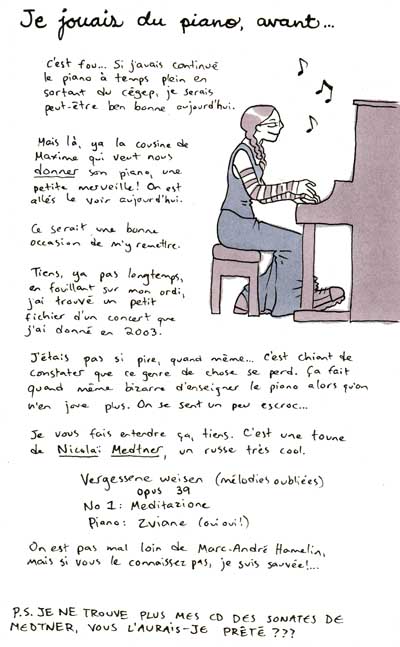 Je jouais du piano, avant...
C'est fou... Si j'avais continué
le piano à temps plein en
sortant du cégep, je serais
peut-être ben bonne aujourd'hui.
Mais là, ya la cousine de
Maxime qui veut nous
donner son piano, une
petite merveille! On est
allés le voir aujourd'hui.
Ce serait une bonne
occasion de m'y remettre.
Tiens, ya pas longtemps,
en fouillant sur mon ordi,
j'ai trouvé un petit
fichier d'un concert que
j'ai donné en 2003.
J'étais pas si pire, quand même... C'est chiant de
constater que ce genre de chose se perd. Ça fait
quand même bizarre d'enseigner le piano alors qu'on
n'en joue plus. On se sent un peu escroc...
Je vous fais entendre ça, tiens. C'est une toune
de Nicolaï Medtner, un russe très cool.
Vergessene weisen (mélodies oubliées)
opus 39
No 1: Meditazione
Piano: Zviane (oui oui!)
On est pas mal loin de Marc-André Hamelin,
mais si vous le connaissez pas, je suis sauvée!...
P.S. JE NE TROUVE PLUS MES CD DES SONATES DE
MEDTNER, VOUS L'AURAIS-JE PRÊTÉ ???